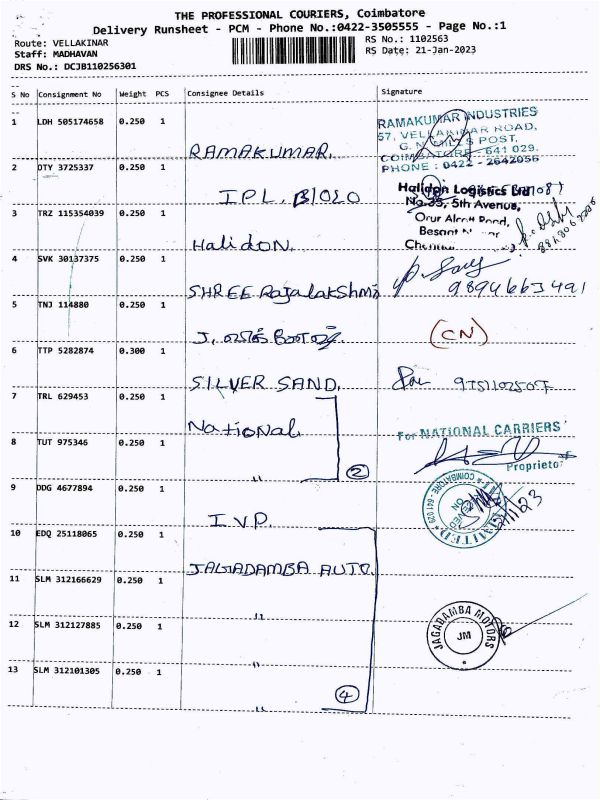 THE PROFESSIONAL COURIERS, Coimbatore
Delivery Runsheet - PCM - Phone No.:0422-3505555 - Page No.:1
Route: VELLAKINAR
Staff: MADHAVAN
DRS No.: DCJB110256301
RS No.: 1102563
RS Date: 21-Jan-2023
S No Consignment No Weight PCS Consignee Details Signature
1 LDH 505174658 0.250 1 RAMAKUMAR.
RAMAKUMAR INDUSTRIES
57, VELLAKINAR ROAD,
G.N. MILLS POST,
COIMBATORE - 641 029.
PHONE : 0422 - 2642056
2 DTY 3725337 0.250 1 I.P.L.
3 TRZ 115354039 0.250 1 Halidon.
Halidon Logistics
No 35, 5th Avenue,
Besant
4 SVK 30137375 0.250 1 SHREE Rajalakshmi
9894663491
5 TNJ 114880 0.250 1 J.
(CN)
6 TTP 5282874 0.300 1 SILVER SAND.
7 TRL 629453 0.250 1 National.
For NATIONAL CARRIERS
Proprietor
8 TUT 975346 0.250 1 "
2
9 DDG 4677894 0.250 1 I.V.P.
COIMBATORE - 641 029
10 EDQ 25118065 0.250 1 JAGADAMBA AUTO.
11 SLM 312166629 0.250 1 "
12 SLM 312127885 0.250 1 "
JAGADAMBA MOTORS
JM
13 SLM 312101305 0.250 1 "
4